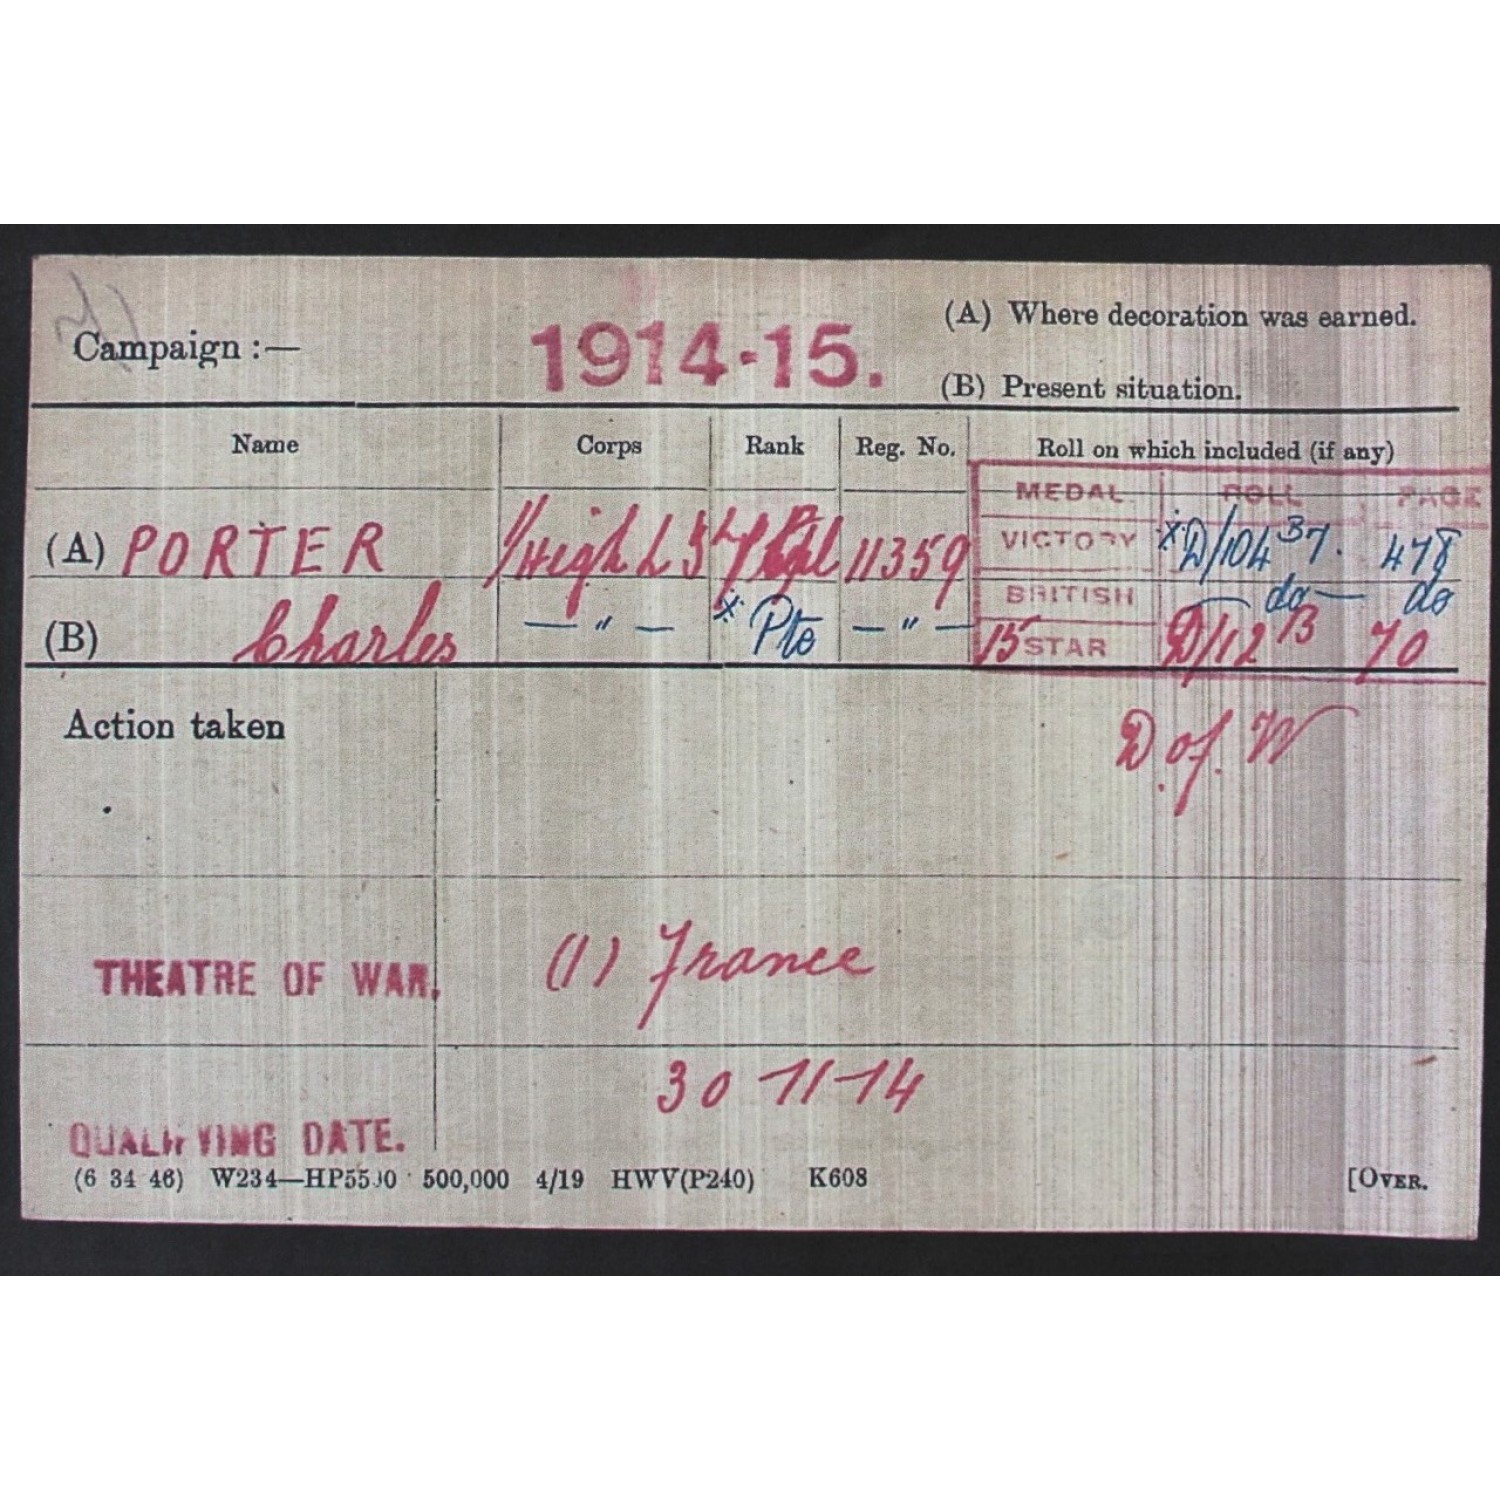 Campaign :— 1914-15.
(A) Where decoration was earned.
(B) Present situation.
Name Corps Rank Reg. No. Roll on which included (if any)
MEDAL ROLL PAGE
(A) PORTER 1/High L I 11359 VICTORY *D/104 B7. 478
BRITISH — do — do
(B) Charles — " — * Pte — " — 15 STAR D/12 B 70
Action taken
D. of. W
THEATRE OF WAR. (1) France
30-11-14
QUALIFYING DATE.
(6 34 46) W234—HP5500 500,000 4/19 HWV(P240) K608 [OVER.